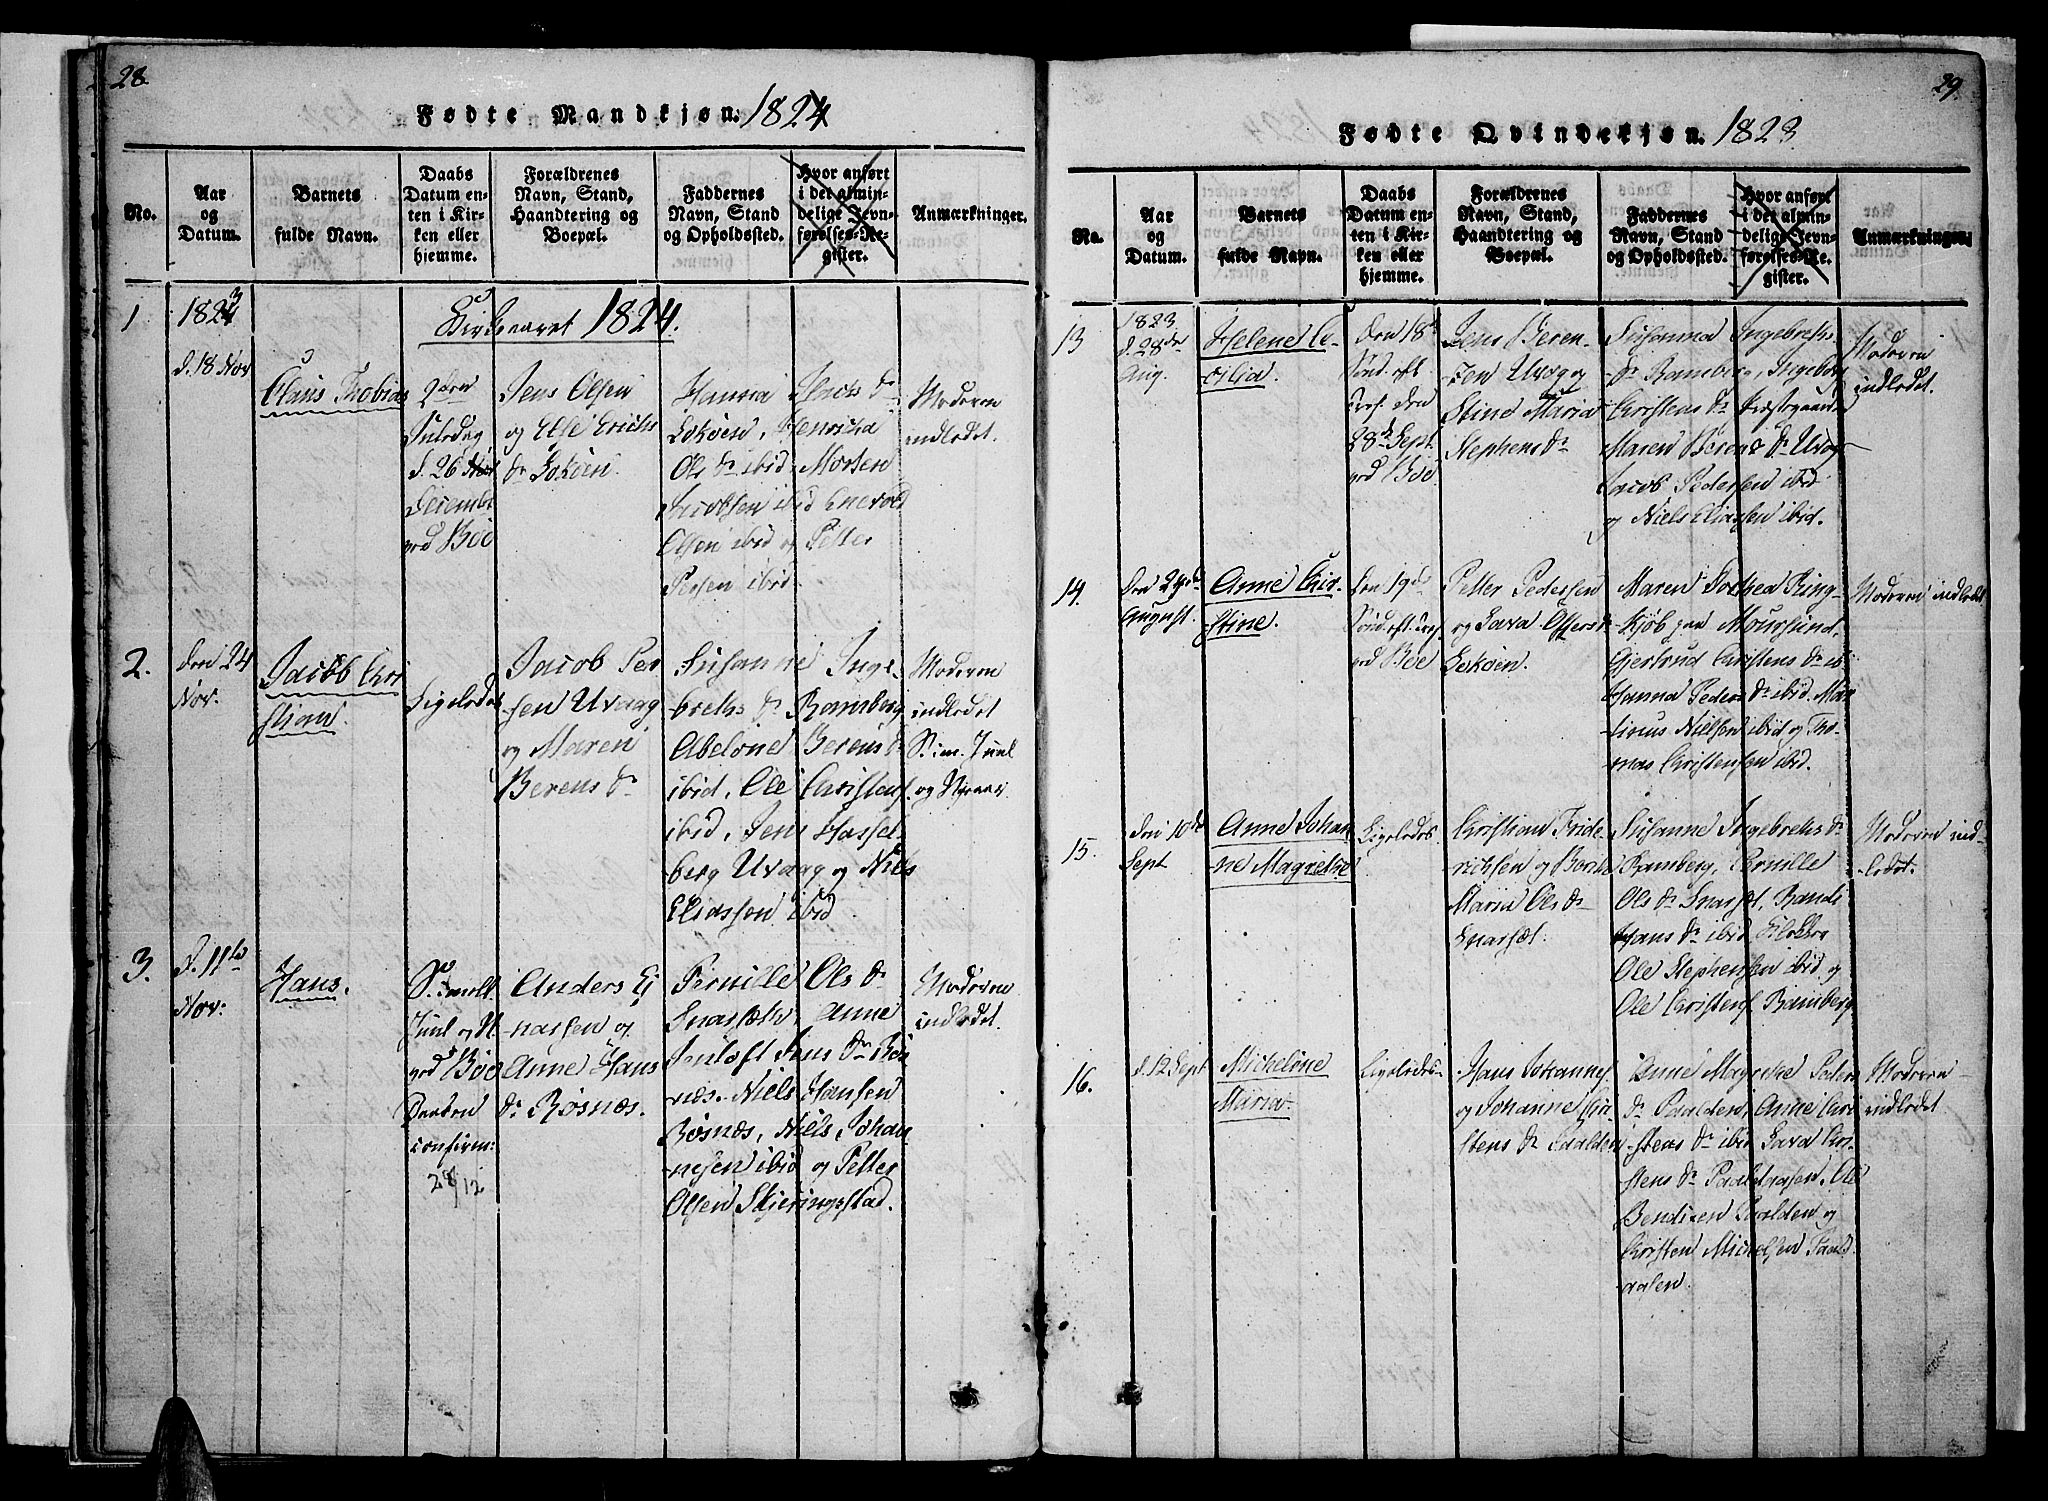 28.
Fødte Mandkjøn. 1824
No.
Aar
og
Datum.
Barnets
fulde Navn.
Daabs
Datum en-
ten i Kir-
ken eller
hjemme.
Forældrenes
Navn, Stand,
Haandtering og
Boepæl.
Faddernes
Navn, Stand
og Opholdssted.
Hvor anført
i det almin-
delige Jevn-
førelses-Re-
gister.
Anmærkninger.
Kirkeaaret 1824.
1
1823
d. 18 Nov
Claus Thobias
2den
Juledag
d. 26
Decembr
ved Böe
Jens Olsen
og Else Erichs
dr Sokøen.
Hanna Isachs dr
Sokøen, Henricha
Ols dr ibid, Morten
Jacobsen ibid Enevold
Olsen ibid og Petter
Persen ibid.
Moderen
indledet.
2.
den 24
Nov.
Jacob Chri
stian.
Ligeledes
Jacob Per
sen Uvaag
og Maren
Berens dr
Susanne Inge-
breths dr Ramberg
Abelone Berens dr
ibid, Ole Christens.
ibid, Jens Hassel-
berg Uvaag og Niels
Eliassen ibid
Moderen
indledet
S. im. Juul
og Nyeaar.
3.
d. 11te
Nov.
Hans.
S. imell
Juul og N.
ved Böe
Daaben
confirm:
28/12
Anders Ei
narsen og
Anne Hans
dr Røsnæs.
Pernille Ols dr
Snarsæth, Anne
Jentoft Jens dr Røs
næs. Niels Hansen
Røsnæs, Niels Johan
nesen ibid og Petter
Olsen Skjeringsstad.
Moderen
indledet.
29.
Fødte Qvindekjøn. 1823
No.
Aar
og
Datum.
Barnets
fulde Navn.
Daabs
Datum en-
ten i Kir-
ken eller
hjemme.
Forældrenes
Navn, Stand,
Haandtering og
Boepæl.
Faddernes
Navn, Stand
og Opholdssted.
Hvor anført
i det almin-
delige Jevn-
førelses-Re-
gister.
Anmærkninger.
13
1823
d. 28de
Aug.
Helene Ce-
cilia.
den 18de
Sönd. eft.
Tref. den
28de Sept.
ved Böe
Jens Beren-
sen Uvog og
Stine Maria
Stephens dr
Susanna Ingebreths
dr Ramberg, Ingeborg
Christens dr Præstegaarden
Maren Berens dr Uvog
Jacob Pedersen ibid
og Niels Eliassen ibid.
Moderen
indledet.
14.
den 29de
August.
Anne Chir-
stine.
den 19de
Sönd. eft. Tref.
ved Böe
Petter Pedersen
og Sara Offers dr
Sokøen.
Maren Dorthea Ring-
kjöb paa Moursund,
Gjertrud Christens dr ib
Hanna Peders dr ibid. Mar
tinus Nielsen ibid og Tho-
mas Christensen ibid.
Moderen indledet
15.
den 10de
Sept
Anne Johan
ne Magrethe
Ligeledes
Christian Fride
richsen og Borth
Maria Ols dr
Snarsæt.
Susanne Ingebreths dr
Ramberg, Pernille
Ols dr Snarsæt, Randi
Hans dr ibid
Ole Stephensen ibid og
Ole Christens. Ramberg
Moderen ind-
ledet.
16.
d. 12 Sept
Michelöne
Maria.
Ligeledes
Hans Johannes.
og Johanne Chri
stens dr Paalden
Anne Magrethe Peters
dr Paalden, Anne Chri
stens dr ibid Sara Chri-
stens dr Ole
Bendixen Paalden og
Christen Michelsen Paals
dalen.
Moderen
indledet